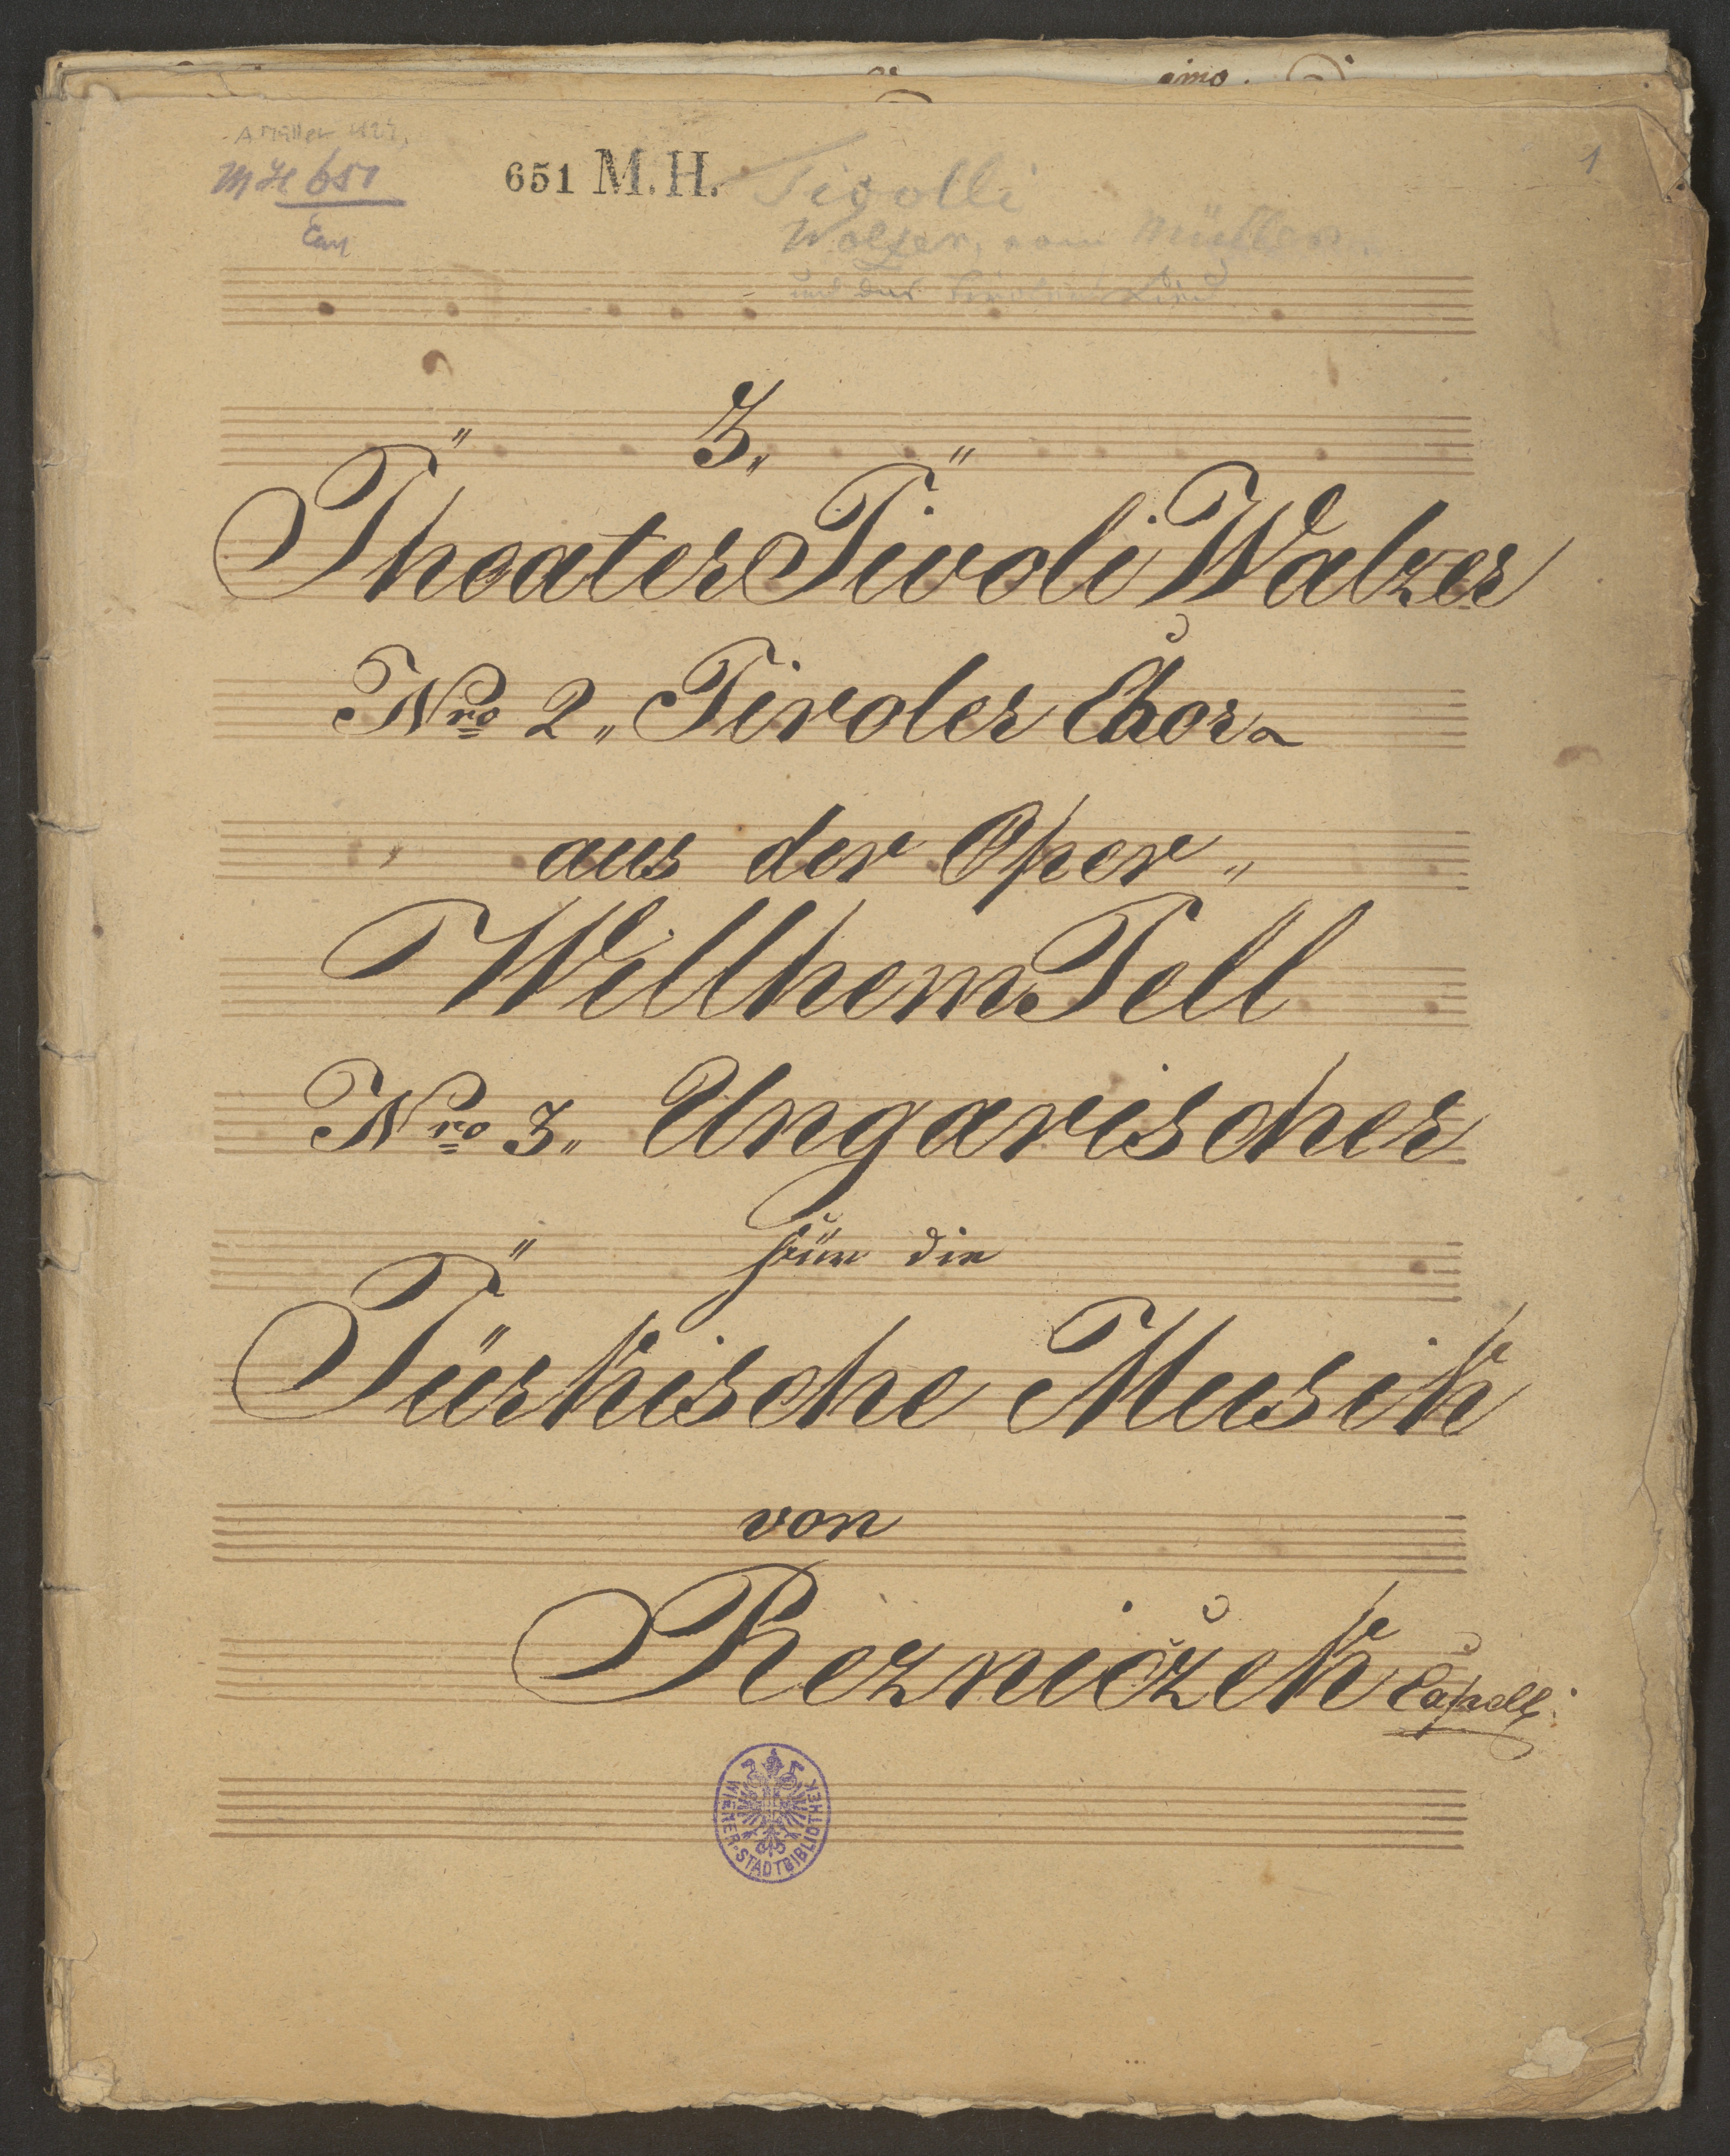 imo.
A Müller
MH 651
651 M.H.
Tivolli
1
Walzer, vom Müller
und das
3„
Theater Tivoli Walzer
Nro 2„ Tiroler Chor
aus der Oper„
Willhem Tell
Nro 3„ Ungarischer
für die
Türkische Musik
von
Rezniczek Capellm.
WIENER-STADTBIBLIOTHEK